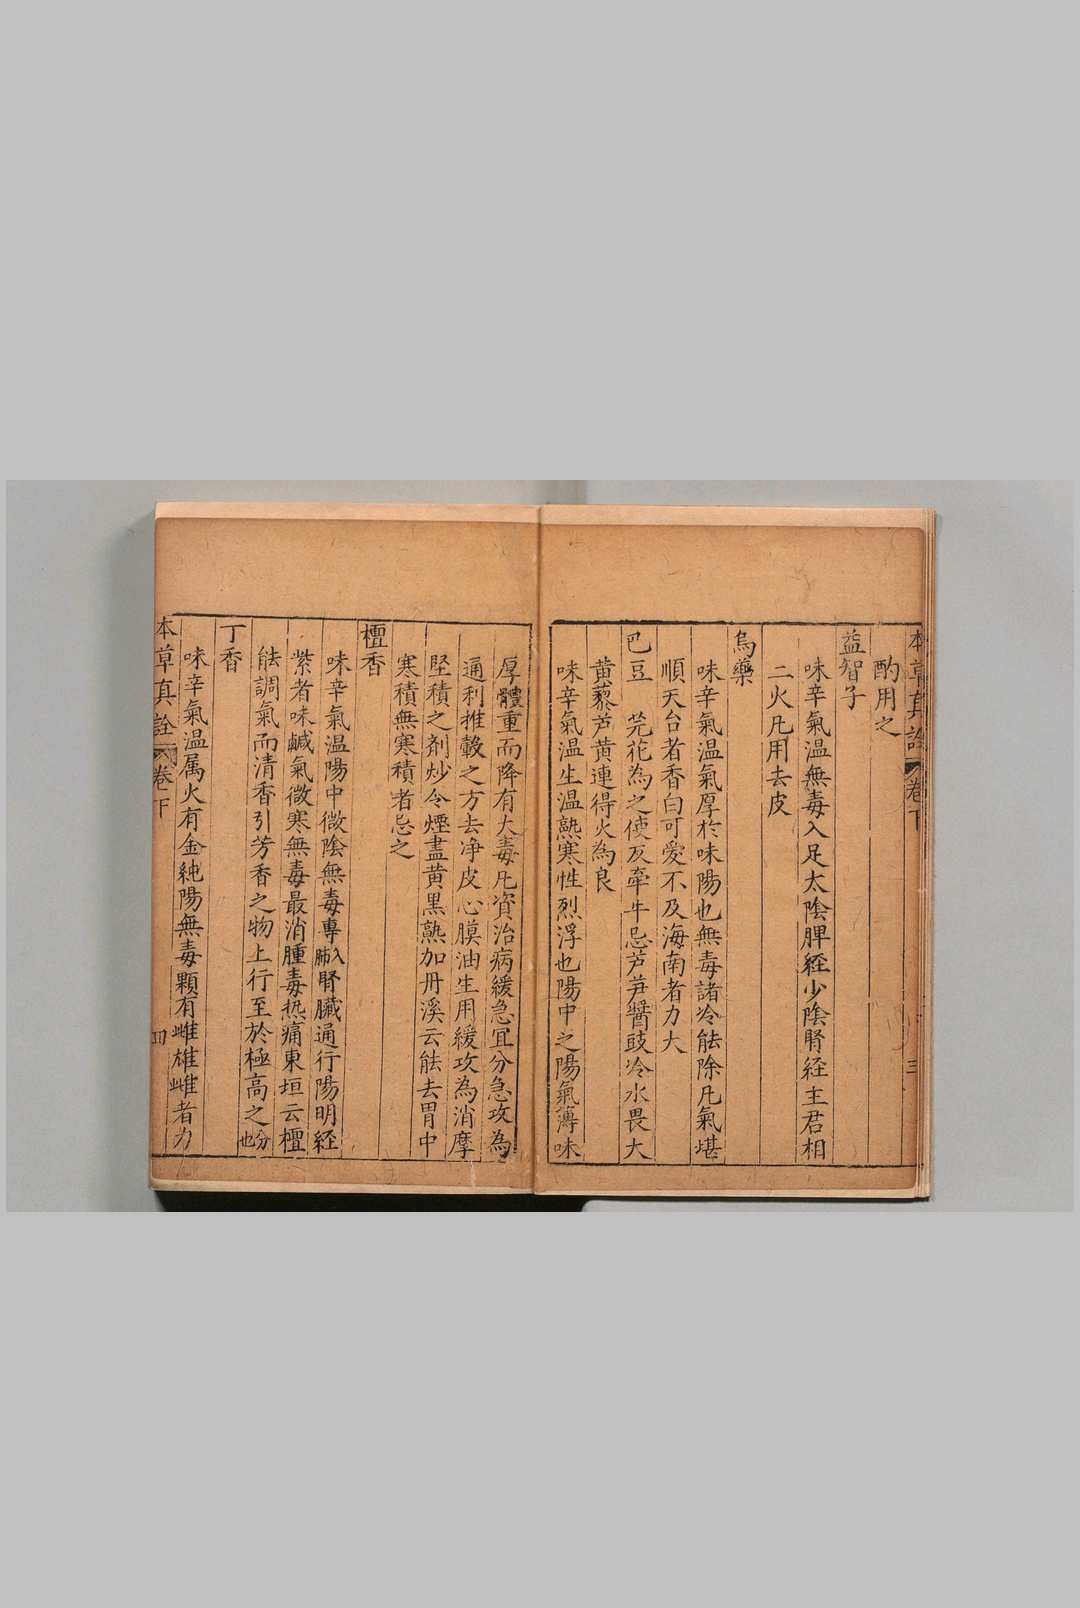 本草真詮 卷下 三
酌用之
益智子
味辛氣温無毒入足太陰脾經少陰腎経主君相
二火凡用去皮
烏藥
味辛氣温氣厚於味陽也無毒諸冷能除凡氣堪
順天台者香白可愛不及海南者力大
巴豆 芫花為之使反牽牛忌芦笋醬豉冷水畏大
黄藜芦黄連得火為良
味辛氣温生温熟寒性烈浮也陽中之陽氣薄味
厚體重而降有大毒凡資治病緩急宜分急攻為
通利推轂之方去净皮心膜油生用緩攻為消摩
堅積之剤炒令煙盡黄黒熟加丹溪云能去胃中
寒積無寒積者忌之
檀香
味辛氣温陽中微陰無毒專入肺腎臟通行陽明経
紫者味鹹氣微寒無毒最消腫毒热痛東垣云檀
能調氣而清香引芳香之物上行至於極高之分也
丁香
味辛氣温属火有金純陽無毒顆有雌雄雌者力
本草真詮 卷下 四